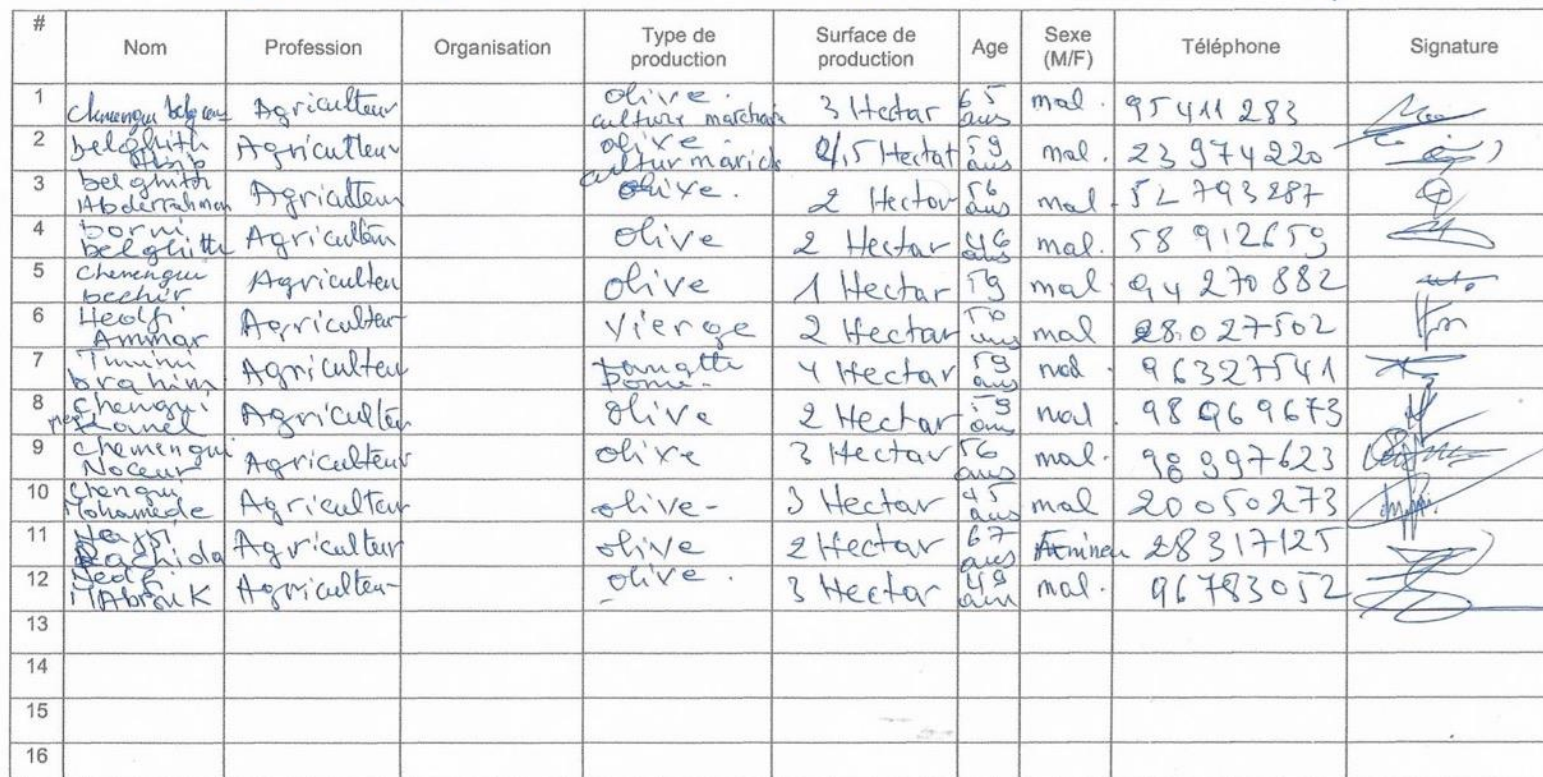 # Nom Profession Organisation Type de production Surface de production Age Sexe (M/F) Téléphone Signature
1 Agriculteur olive. 3 Hectar 65 ans mal. 95 411 283
2 belghith Agriculteur olive. 2,5 Hectat 59 ans mal. 23 974 220
3 belghith Abderrahmen Agriculteur olive. 2 Hectar 56 ans mal 52 793 287
4 borni belghith Agriculteur olive 2 Hectar 46 ans mal. 58 912659
5 chemengui bechir Agriculteu olive 1 Hectar 59 mal 94 270 882
6 Hedfi Ammar Agriculteur Vierge 2 Hectar 50 ans mal 28.027502
7 brahim Agriculteur 4 Hectar 59 ans mal. 96327541
8 Kamel Agriculteur olive 2 Hectar ans mal. 98 969673
9 Chemengui Noceur Agriculteur olive 3 Hectar 56 ans mal. 98 997623
10 Chengui Mohamede Agriculteur olive- 3 Hectar 45 ans mal 20050273
11 Rachida Agriculteur olive 2 Hectar 67 ans 28317125
12 Hedfi MAbrouK Agriculteur olive. 3 Hectar 49 ans mal. 96783052
13
14
15
16